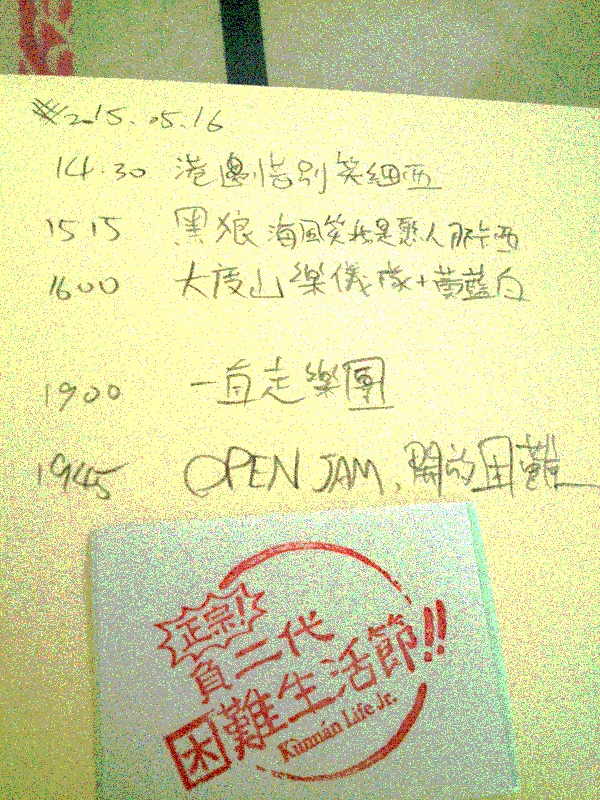 2015.05.16
14:30 港邊惜別 笑細西
1515 黑狼 海風笑我是憨人
1600 大度山 樂儀隊+黃藍白
1900 一直走樂團
1945 OPEN JAM, 開放困難
正宗!
負二代
困難生活節!!
Kùnnán Life Jr.